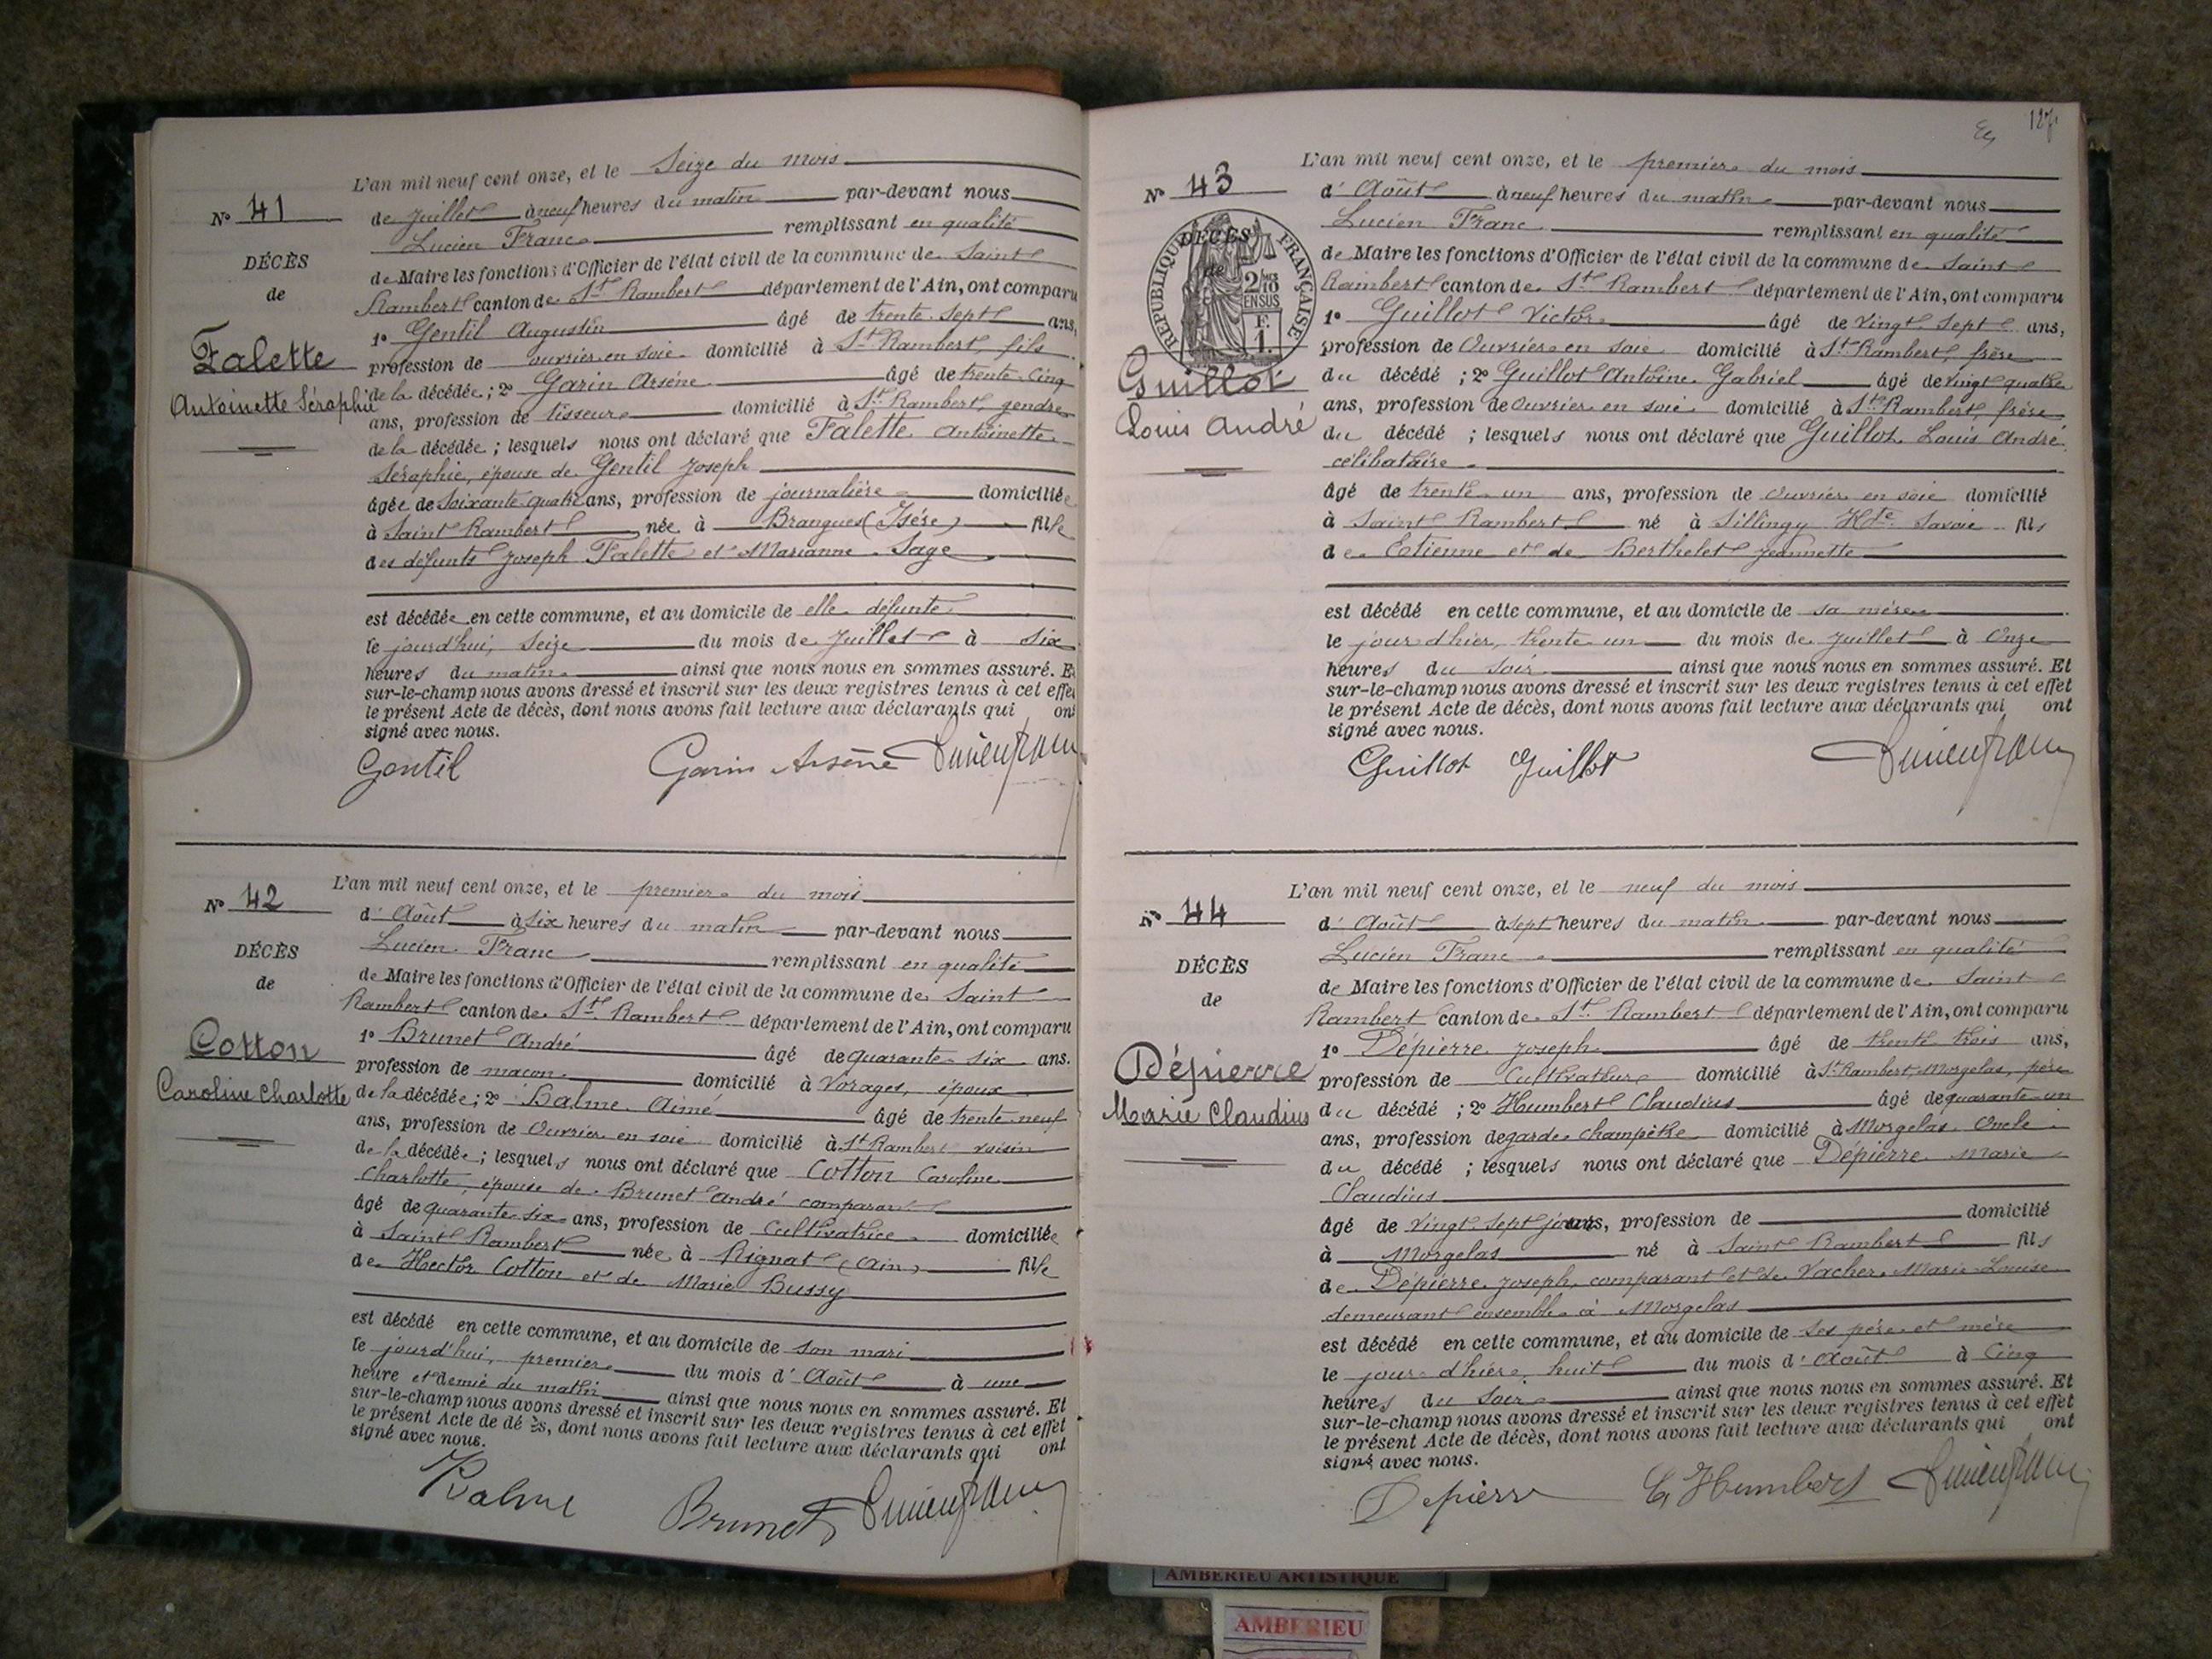 L'an mil neuf cent onze, et le Seize du mois
N° 41
de Juillet à neuf heures du matin par-devant nous
Lucien Franc remplissant en qualité
DÉCÈS
de Maire les fonctions d'Officier de l'état civil de la commune de Saint
de
Rambert canton de St Rambert département de l'Ain, ont comparu
1° Gentil Augustin âgé de trente-sept ans,
Falette
profession de ouvrier en soie domicilié à St Rambert, fils
Antoinette Séraphie
de la décédée; 2° Garin Arsène âgé de trente-cinq
ans, profession de tisseur domicilié à St Rambert, gendre
de la décédée; lesquels nous ont déclaré que Falette Antoinette
Séraphie, épouse de Gentil Joseph
âgée de Soixante-quatre ans, profession de journalière domiciliée
à Saint Rambert née à Brangues (Isère) fille
des défunts Joseph Falette et Marianne Sage
est décédée en cette commune, et au domicile de elle défunte
le jourd'hui, Seize du mois de Juillet à six
heures du matin ainsi que nous nous en sommes assuré. Et
sur-le-champ nous avons dressé et inscrit sur les deux registres tenus à cet effet
le présent Acte de décès, dont nous avons fait lecture aux déclarants qui ont
signé avec nous.
Gentil Garin Arsène Lucien Franc
L'an mil neuf cent onze, et le premier du mois
N° 42
d'Août à six heures du matin par-devant nous
Lucien Franc remplissant en qualité
DÉCÈS
de Maire les fonctions d'Officier de l'état civil de la commune de Saint
de
Rambert canton de St Rambert département de l'Ain, ont comparu
1° Brunet André âgé de quarante-six ans.
Cotton
profession de maçon domicilié à Vorages, époux
Caroline Charlotte
de la décédée; 2° Balme Aimé âgé de trente neuf
ans, profession de Ouvrier en soie domicilié à St Rambert voisin
de la décédée; lesquels nous ont déclaré que Cotton Caroline
Charlotte, épouse de Brunet André comparant
âgé de quarante-six ans, profession de Cultivatrice domiciliée
à Saint Rambert née à Rignat (Ain) fille
de Hector Cotton et de Marie Bussy
est décédé en cette commune, et au domicile de son mari
le jourd'hui, premier du mois d'Août à une
heure et demie du matin ainsi que nous nous en sommes assuré. Et
sur-le-champ nous avons dressé et inscrit sur les deux registres tenus à cet effet
le présent Acte de dé ès, dont nous avons fait lecture aux déclarants qui ont
signé avec nous.
Balme Brunet Lucien Franc
127
L'an mil neuf cent onze, et le premier du mois
N° 43
d'Août à neuf heures du matin par-devant nous
Lucien Franc remplissant en qualité
DÉCÈS
de
RÉPUBLIQUE FRANÇAISE
2/10 EN SUS
F. 1.
de Maire les fonctions d'Officier de l'état civil de la commune de Saint
Rambert canton de St Rambert département de l'Ain, ont comparu
1° Guillot Victor âgé de vingt sept ans,
profession de Ouvrier en soie domicilié à St Rambert, frère
Guillot
du décédé; 2° Guillot Antoine Gabriel âgé de vingt quatre
Louis André
ans, profession de Ouvrier en soie domicilié à St Rambert, frère
du décédé; lesquels nous ont déclaré que Guillot Louis André
célibataire
âgé de trente-un ans, profession de Ouvrier en soie domicilié
à Saint Rambert né à Sillingy Hte Savoie fils
de Etienne et de Berthelet Jeannette
est décédé en cette commune, et au domicile de sa mère
le jour d'hier, trente un du mois de Juillet à Onze
heures du soir ainsi que nous nous en sommes assuré. Et
sur-le-champ nous avons dressé et inscrit sur les deux registres tenus à cet effet
le présent Acte de décès, dont nous avons fait lecture aux déclarants qui ont
signé avec nous.
Guillot Guillot Lucien Franc
L'an mil neuf cent onze, et le neuf du mois
N° 44
d'Août à sept heures du matin par-devant nous
Lucien Franc remplissant en qualité
DÉCÈS
de Maire les fonctions d'Officier de l'état civil de la commune de Saint
de
Rambert canton de St Rambert département de l'Ain, ont comparu
1° Dépierre Joseph âgé de trente trois ans,
Dépierre
profession de Cultivateur domicilié à St Rambert, Morgelas, père
Marie Claudius
du décédé; 2° Humbert Claudius âgé de quarante-un
ans, profession de garde champêtre domicilié à Morgelas Oncle
du décédé; lesquels nous ont déclaré que Dépierre Marie
Claudius
âgé de vingt-sept jours, profession de domicilié
à Morgelas né à Saint Rambert fils
de Dépierre Joseph, comparant et de Vacher Marie-Louise
demeurant ensemble à Morgelas
est décédé en cette commune, et au domicile de ses père et mère
le jour d'hier, huit du mois d'Août à Cinq
heures du Soir ainsi que nous nous en sommes assuré. Et
sur-le-champ nous avons dressé et inscrit sur les deux registres tenus à cet effet
le présent Acte de décès, dont nous avons fait lecture aux déclarants qui ont
signé avec nous.
Depierre C. Humbert Lucien Franc
AMBERIEU ARTISTIQUE
AMBERIEU